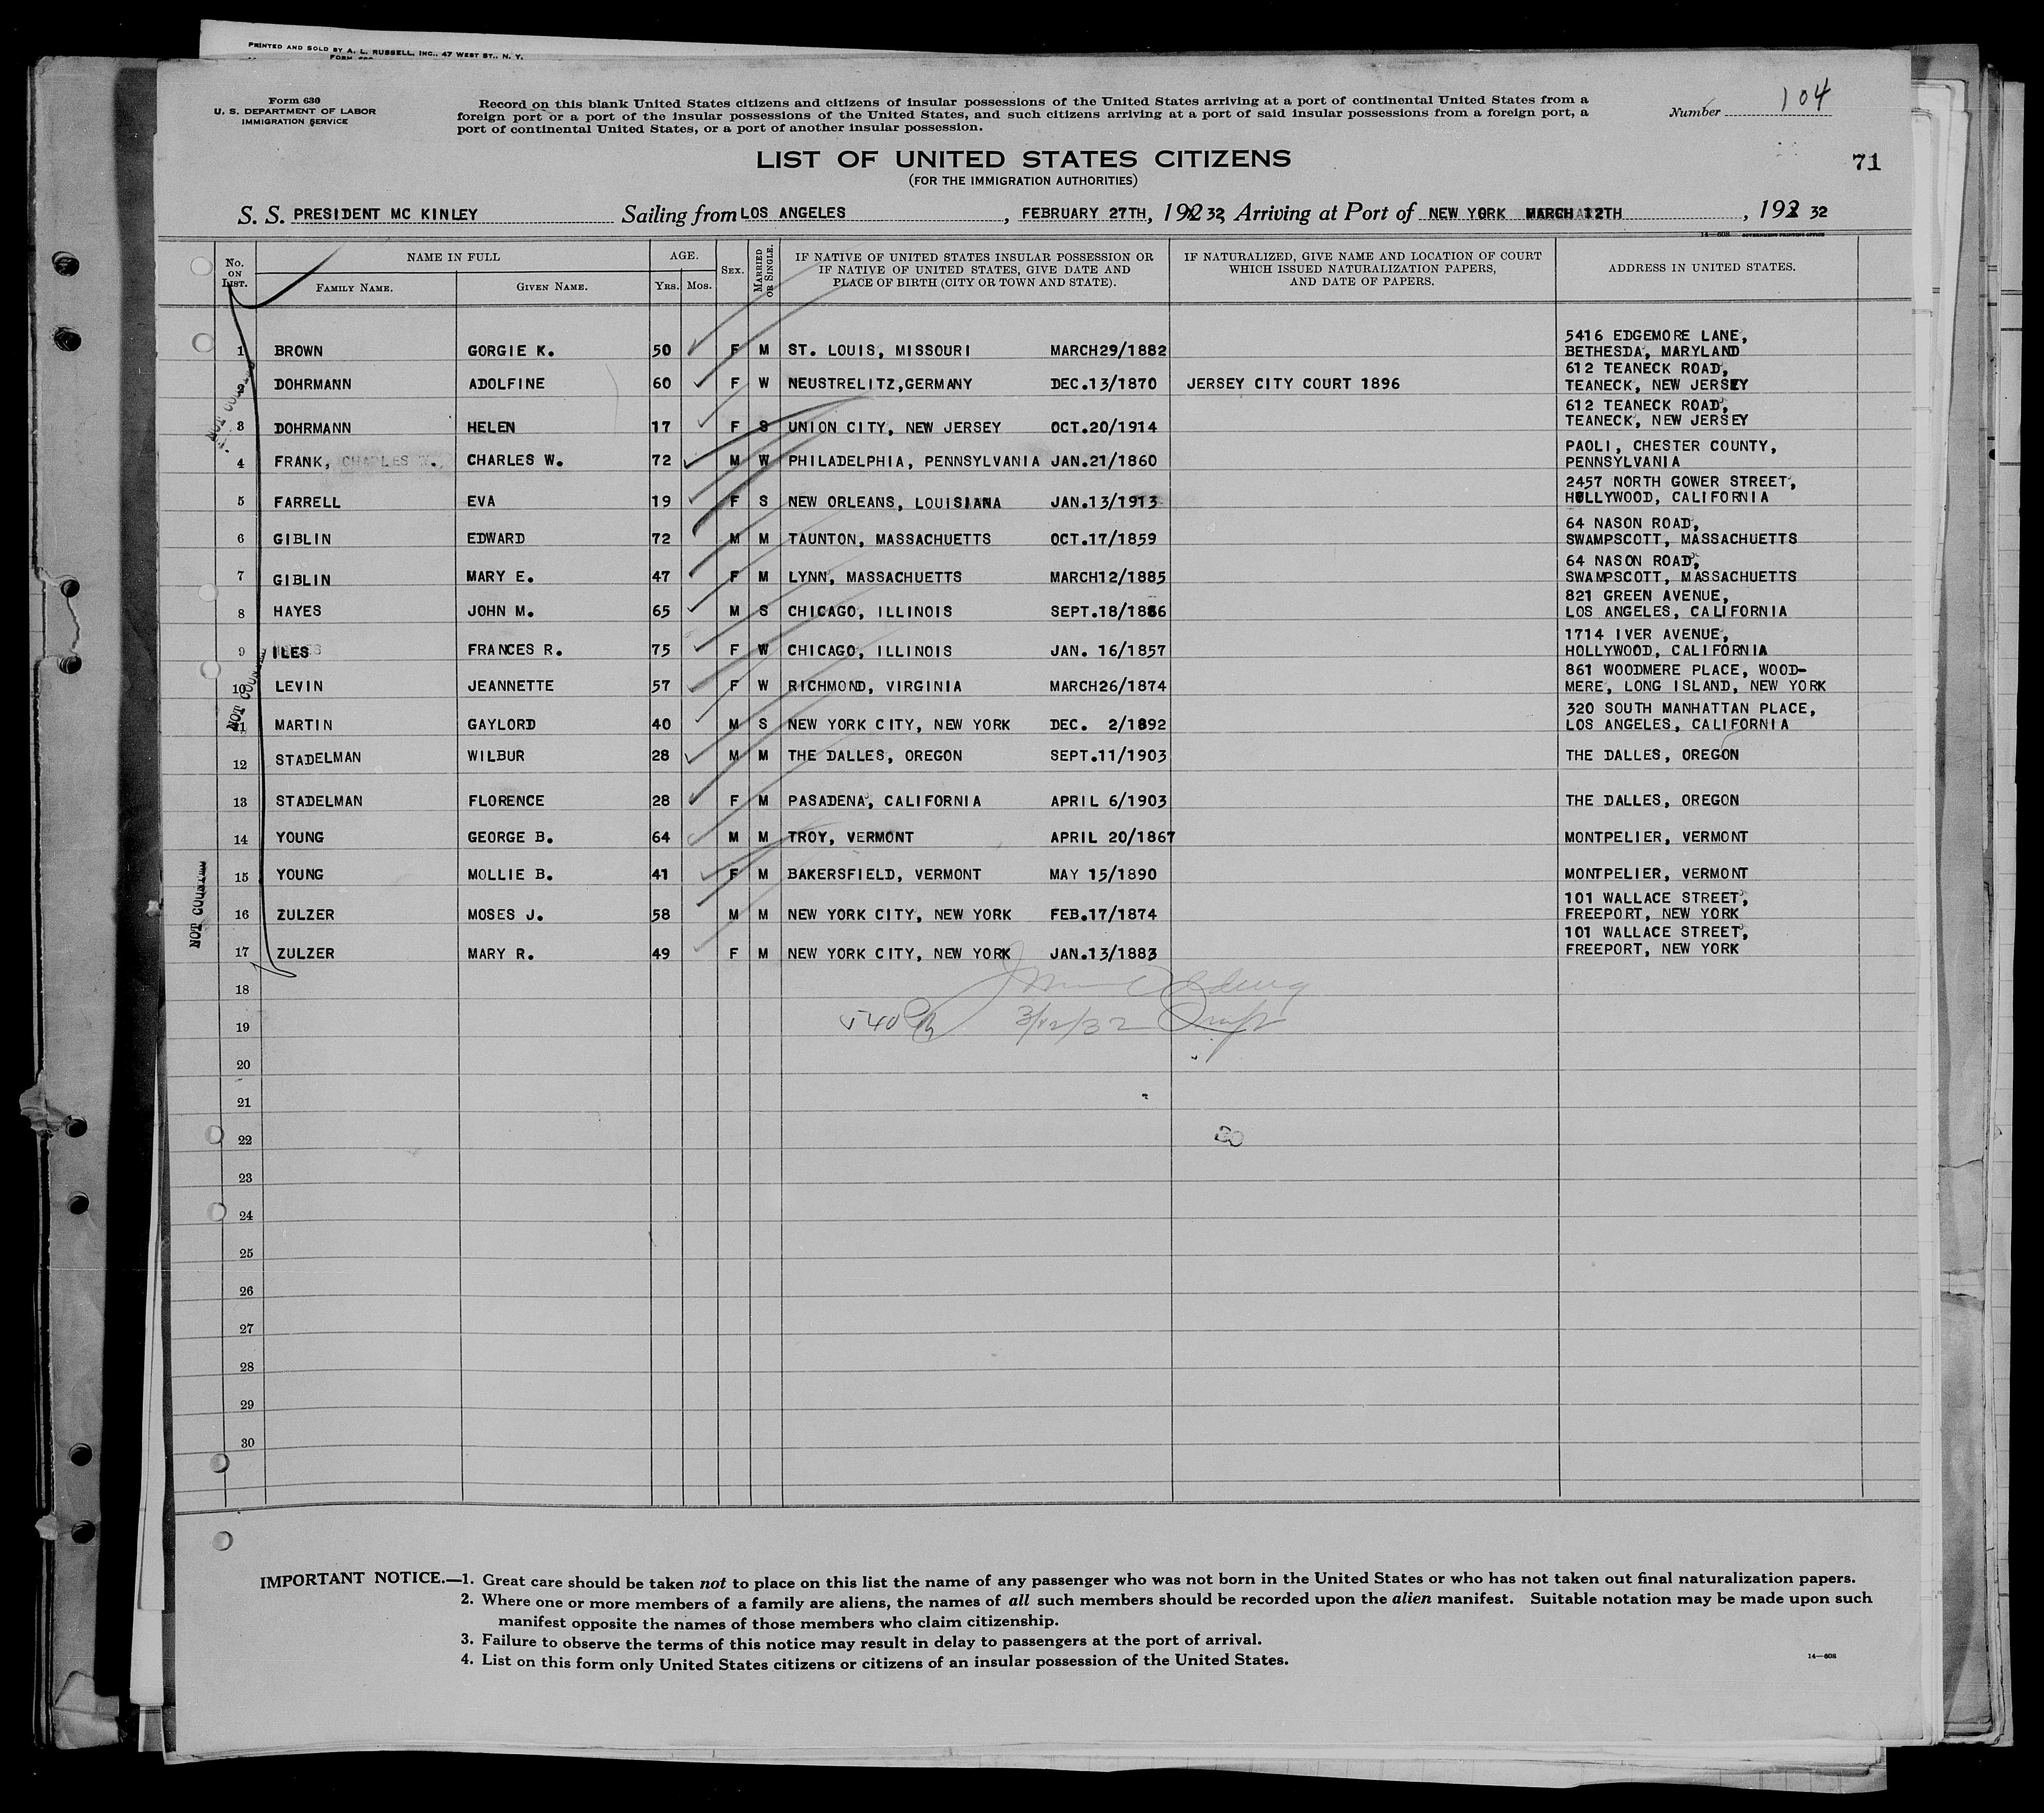 PRINTED AND SOLD BY A. L. RUSSELL, INC., 47 WEST ST., N. Y.
Form 630
U. S. DEPARTMENT OF LABOR
IMMIGRATION SERVICE
Record on this blank United States citizens and citizens of insular possessions of the United States arriving at a port of continental United States from a
foreign port or a port of the insular possessions of the United States, and such citizens arriving at a port of said insular possessions from a foreign port, a
port of continental United States, or a port of another insular possession.
Number 104
LIST OF UNITED STATES CITIZENS
(FOR THE IMMIGRATION AUTHORITIES)
71
S. S. PRESIDENT MC KINLEY Sailing from LOS ANGELES, FEBRUARY 27TH, 192 32, Arriving at Port of NEW YORK MARCH 12TH, 192 32
14—608 GOVERNMENT PRINTING OFFICE
No. ON LIST. NAME IN FULL FAMILY NAME. GIVEN NAME. AGE. Yrs. Mos. SEX. MARRIED OR SINGLE. IF NATIVE OF UNITED STATES INSULAR POSSESSION OR IF NATIVE OF UNITED STATES, GIVE DATE AND PLACE OF BIRTH (CITY OR TOWN AND STATE). IF NATURALIZED, GIVE NAME AND LOCATION OF COURT WHICH ISSUED NATURALIZATION PAPERS, AND DATE OF PAPERS. ADDRESS IN UNITED STATES.
1 BROWN GORGIE K. 50 F M ST. LOUIS, MISSOURI MARCH29/1882 5416 EDGEMORE LANE, BETHESDA, MARYLAND
2 DOHRMANN ADOLFINE 60 F W NEUSTRELITZ,GERMANY DEC.13/1870 JERSEY CITY COURT 1896 612 TEANECK ROAD, TEANECK, NEW JERSEY
3 DOHRMANN HELEN 17 F S UNION CITY, NEW JERSEY OCT.20/1914 612 TEANECK ROAD, TEANECK, NEW JERSEY
4 FRANK, CHARLES W. CHARLES W. 72 M W PHILADELPHIA, PENNSYLVANIA JAN.21/1860 PAOLI, CHESTER COUNTY, PENNSYLVANIA
5 FARRELL EVA 19 F S NEW ORLEANS, LOUISIANA JAN.13/1913 2457 NORTH GOWER STREET, HOLLYWOOD, CALIFORNIA
6 GIBLIN EDWARD 72 M M TAUNTON, MASSACHUETTS OCT.17/1859 64 NASON ROAD, SWAMPSCOTT, MASSACHUETTS
7 GIBLIN MARY E. 47 F M LYNN, MASSACHUETTS MARCH12/1885 64 NASON ROAD, SWAMPSCOTT, MASSACHUETTS
8 HAYES JOHN M. 65 M S CHICAGO, ILLINOIS SEPT.18/1866 821 GREEN AVENUE, LOS ANGELES, CALIFORNIA
9 ILES FRANCES R. 75 F W CHICAGO, ILLINOIS JAN. 16/1857 1714 IVER AVENUE, HOLLYWOOD, CALIFORNIA
10 LEVIN JEANNETTE 57 F W RICHMOND, VIRGINIA MARCH26/1874 861 WOODMERE PLACE, WOOD-MERE, LONG ISLAND, NEW YORK
11 MARTIN GAYLORD 40 M S NEW YORK CITY, NEW YORK DEC. 2/1892 320 SOUTH MANHATTAN PLACE, LOS ANGELES, CALIFORNIA
12 STADELMAN WILBUR 28 M M THE DALLES, OREGON SEPT.11/1903 THE DALLES, OREGON
13 STADELMAN FLORENCE 28 F M PASADENA, CALIFORNIA APRIL 6/1903 THE DALLES, OREGON
14 YOUNG GEORGE B. 64 M M TROY, VERMONT APRIL 20/1867 MONTPELIER, VERMONT
15 YOUNG MOLLIE B. 41 F M BAKERSFIELD, VERMONT MAY 15/1890 MONTPELIER, VERMONT
16 ZULZER MOSES J. 58 M M NEW YORK CITY, NEW YORK FEB.17/1874 101 WALLACE STREET, FREEPORT, NEW YORK
17 ZULZER MARY R. 49 F M NEW YORK CITY, NEW YORK JAN.13/1883 101 WALLACE STREET, FREEPORT, NEW YORK
NOT COUNTED
18
19 3/12/32
20
21
22
23
24
25
26
27
28
29
30
IMPORTANT NOTICE.—1. Great care should be taken not to place on this list the name of any passenger who was not born in the United States or who has not taken out final naturalization papers.
2. Where one or more members of a family are aliens, the names of all such members should be recorded upon the alien manifest. Suitable notation may be made upon such
manifest opposite the names of those members who claim citizenship.
3. Failure to observe the terms of this notice may result in delay to passengers at the port of arrival.
4. List on this form only United States citizens or citizens of an insular possession of the United States.
14—608